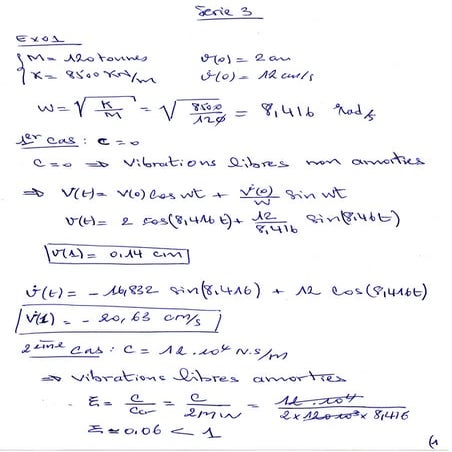 Serie 3
Exo1
M = 120 tonnes   v(0) = 2 cm
K = 8500 KN/m   v̇(0) = 12 cm/s
W = √(K/M) = √(8500/120) = 8,416 rad/s
1er cas : C = 0
C = 0 ⇒ Vibrations libres non amorties
⇒ V(t) = V(0) cos wt + V̇(0)/W sin wt
v(t) = 2 cos(8,416t) + 12/8,416 sin(8,416t)
V(1) = 0,14 cm
v̇(t) = - 16,832 sin(8,416) + 12 cos(8,416t)
V̇(1) = - 20,63 cm/s
2ème cas : C = 12.10⁴ N.s/m
⇒ Vibrations libres amorties
ξ = C/Ccr = C/2MW = 12.10⁴/2x120.10³x8,416
ξ = 0.06 < 1
(1